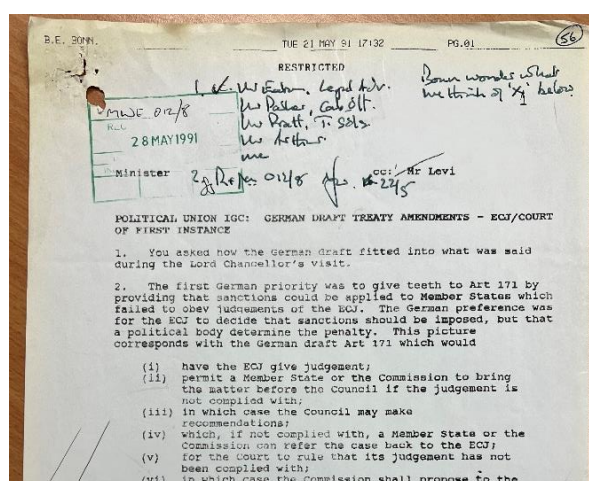 B.E. BONN.
TUE 21 MAY 91 17:32
PG.01
56
RESTRICTED
Bonn wonders what
we think of 'X' below.
1. Mr Eaton, Legal Adv.
Mr Parker, Cab Off.
Mr Pratt, T. Sols
Mr Arthur
me
MWE 012/8
REC
28 MAY 1991
Minister
2. 012/8
22/5
cc: Mr Levi
POLITICAL UNION IGC: GERMAN DRAFT TREATY AMENDMENTS - ECJ/COURT
OF FIRST INSTANCE
1. You asked how the German draft fitted into what was said
during the Lord Chancellor's visit.
2. The first German priority was to give teeth to Art 171 by
providing that sanctions could be applied to Member States which
failed to obey judgements of the ECJ. The German preference was
for the ECJ to decide that sanctions should be imposed, but that
a political body determine the penalty. This picture
corresponds with the German draft Art 171 which would
(i) have the ECJ give judgement;
(ii) permit a Member State or the Commission to bring
the matter before the Council if the judgement is
not complied with;
(iii) in which case the Council may make
recommendations;
(iv) which, if not complied with, a Member State or the
Commission can refer the case back to the ECJ;
(v) for the Court to rule that its judgement has not
been complied with;
(vi) in which case the Commission shall propose to the